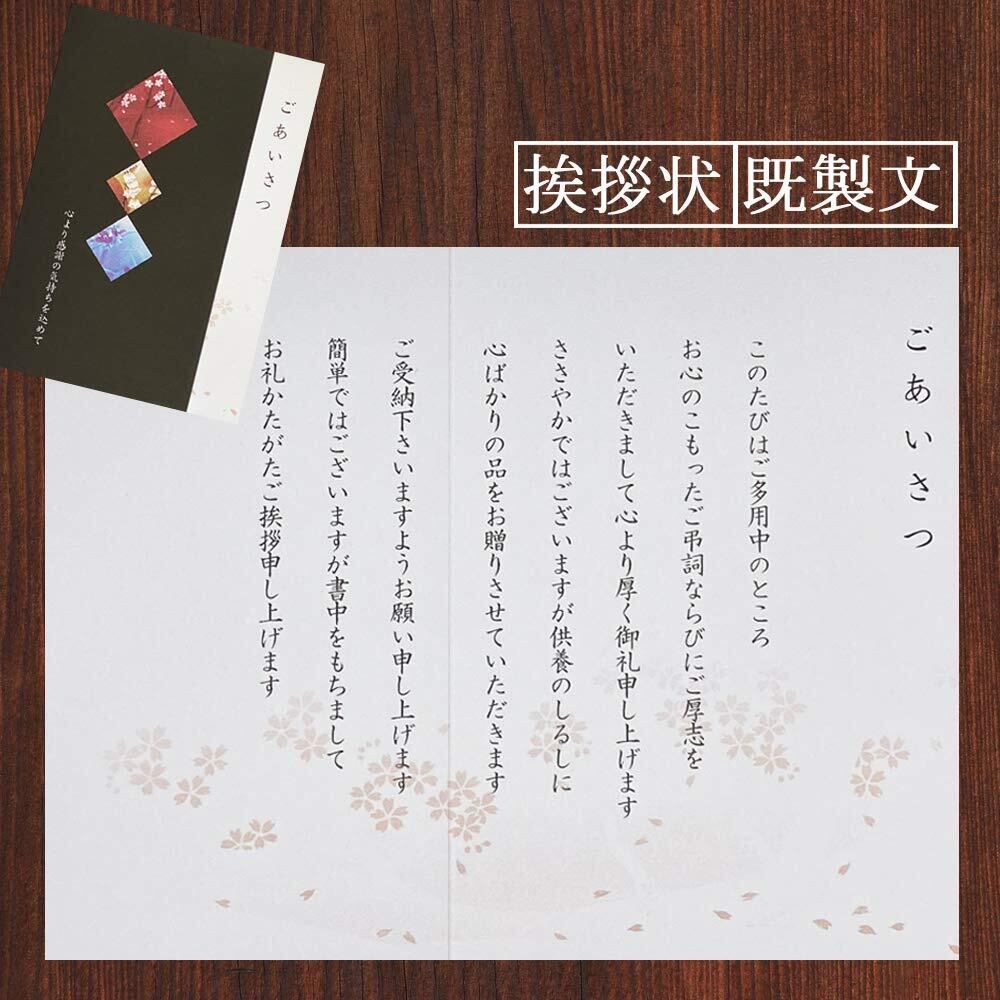 ごあいさつ
心より感謝の気持ちを込めて
挨拶状
既製文
ごあいさつ
このたびはご多用中のところ
お心のこもったご弔詞ならびにご厚志を
いただきまして心より厚く御礼申し上げます
ささやかではございますが供養のしるしに
心ばかりの品をお贈りさせていただきます
ご受納下さいますようお願い申し上げます
簡単ではございますが書中をもちまして
お礼かたがたご挨拶申し上げます